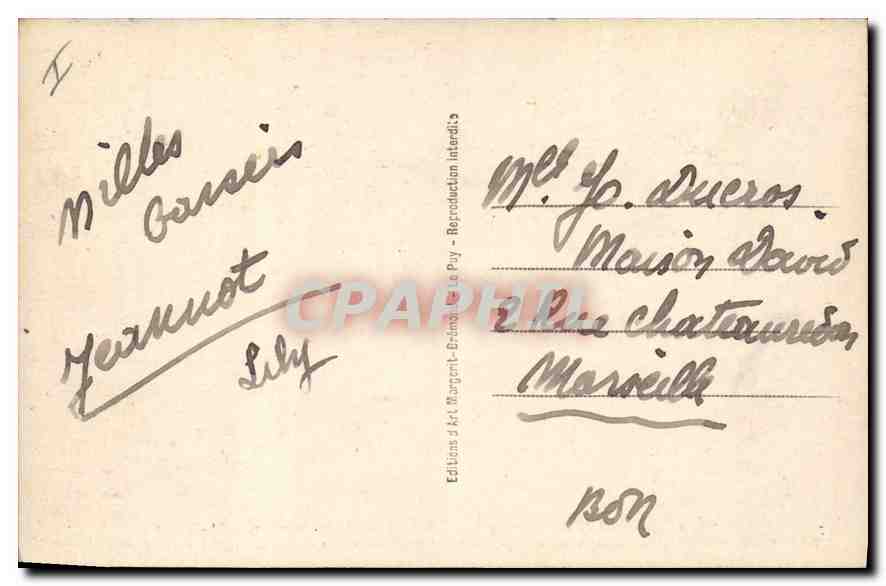 I
Milles
baisers
Jeannot
Lily
Editions d'Art Margerit-Brémond - Le Puy - Reproduction interdite
CPARHIL
Mlle Jo. Ducros.
Maison David
2 Rue Chateauredon
Marseille
BDR